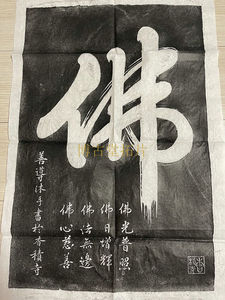 佛
佛光普照
佛日增輝
佛法無邊
佛心慈善
善導沐手書於香積寺